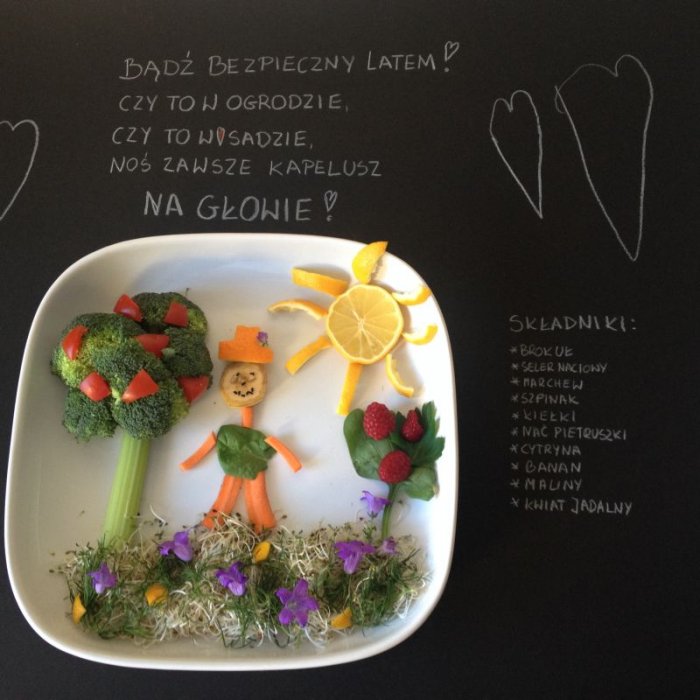 BĄDŹ BEZPIECZNY LATEM!
CZY TO W OGRODZIE,
CZY TO W SADZIE,
NOŚ ZAWSZE KAPELUSZ
NA GŁOWIE!
SKŁADNIKI:
*BROKUŁ
*SELER NACIOWY
*MARCHEW
*SZPINAK
*KIEŁKI
*NAĆ PIETRUSZKI
*CYTRYNA
*BANAN
*MALINY
*KWIAT JADALNY